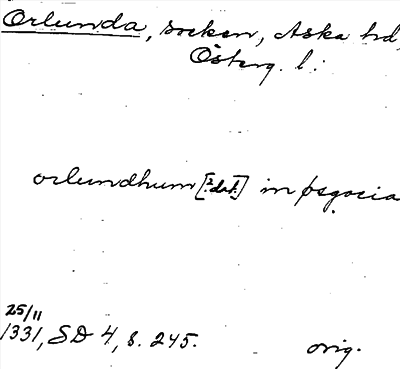 Orlunda, socken, Aska hd,
Österg. l:
orlundhum [?dat.] in øsgocia
25/11
1331, SD 4, s. 245. orig.